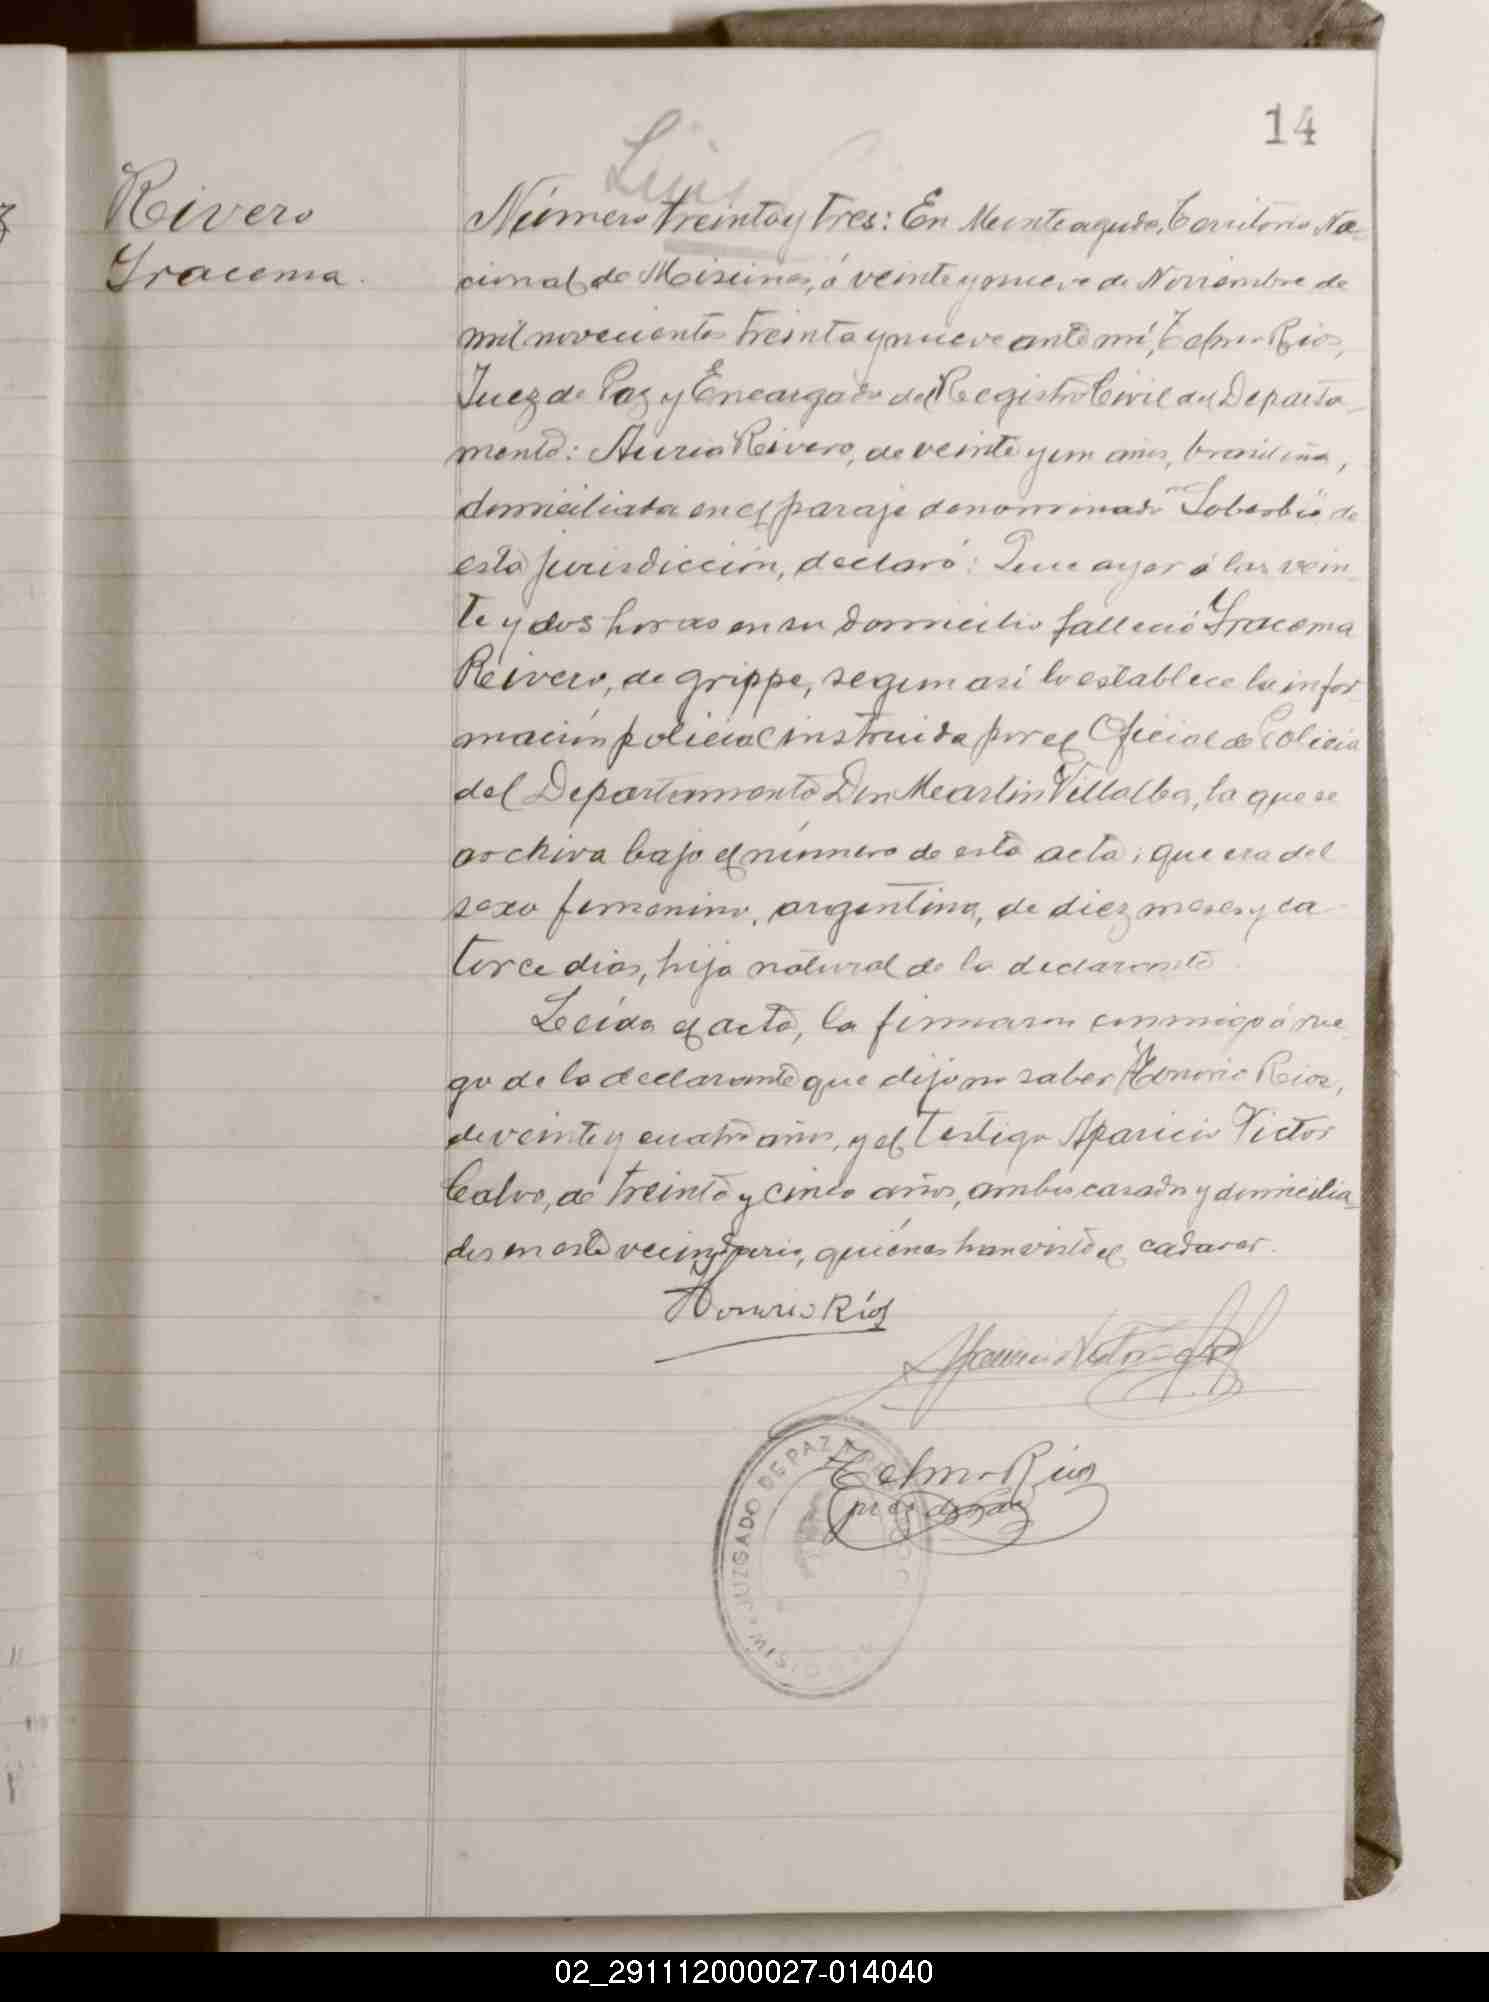 14
Luis
Rivero
Iracema.
Número treinta y tres: En Monteagudo, Territorio Na-
cional de Misiones, á veinte y nueve de Noviembre de
mil novecientos treinta y nueve ante mí, Telmo Rios,
Juez de Paz y Encargado del Registro Civil del Departa-
mento: Auria Rivero, de veinte y un años, brasileña,
domiciliada en el paraje denominado "Soberbio" de
esta jurisdicción, declaró: Que ayer á las vein-
te y dos horas en su domicilio falleció Iracema
Rivero, de grippe, segun asi lo establece la infor-
mación policial instruida por el Oficial de Policia
del Departamento Don Martin Villalba, la que se
archiva bajo el número de esta acta; que era del
sexo femenino, argentina, de diez meses y ca-
torce dias, hija natural de la declarante.
Leída el acta, la firmaron conmigo á rue-
go de la declarante que dijo no saber Honorio Rios,
de veinte y cuatro años, y el testigo Aparicio Victor
Calvo, de treinta y cinco años, ambos casados y domicilia-
dos en este vecindario, quiénes han visto el cadaver.
Honorio Ríos
Aparicio Victor
Telmo Rios
JUZGADO DE PAZ
02_291112000027-014040